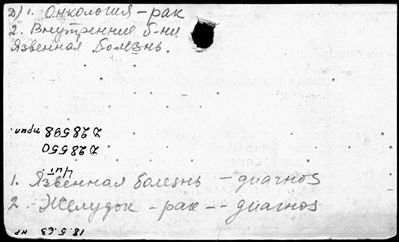 Д) 1. Онкология – рак
2. Внутренние б-ни
Язвенная болезнь.
Д 28598
Д 28550
чит.
1. Язвенная болезнь – диагноз
2. Желудок – рак – – диагноз
18.5.63